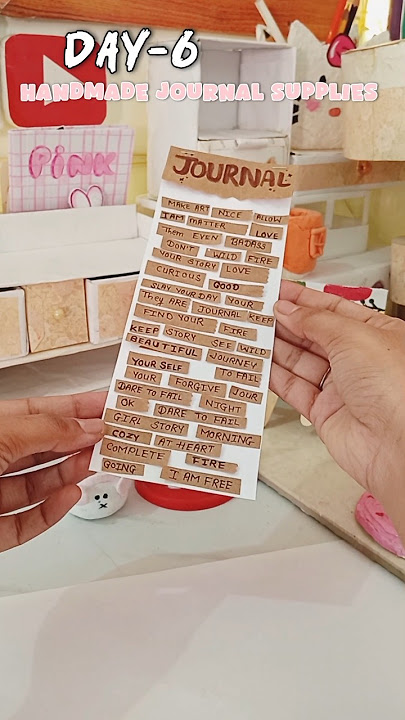 DAY-6
HANDMADE JOURNAL SUPPLIES
PINK
JOURNAL
MAKE ART NICE ALLOW
I AM MATTER LOVE
Them EVEN BADASS
DON'T WILD FIRE
YOUR STORY LOVE
CURIOUS GOOD
SLAY YOUR DAY YOUR
They ARE JOURNAL KEEP
FIND YOUR FIRE
KEEP STORY SEE WILD
BEAUTIFUL JOURNEY
YOUR SELF TO FAIL
YOUR FORGIVE JOUR
DARE TO FAIL NIGHT
OK DARE TO FAIL
GIRL STORY MORNING
COZY AT HEART
COMPLETE FIRE
GOING I AM FREE